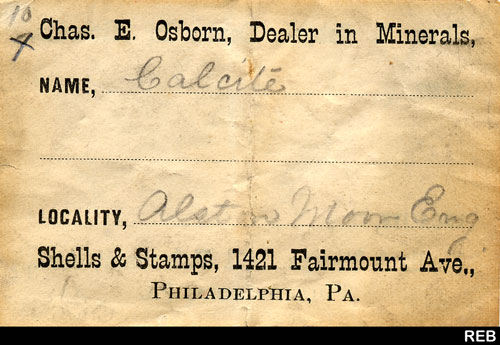 10
X
Chas. E. Osborn, Dealer in Minerals,
NAME, Calcite
LOCALITY, Alston Moor Eng
Shells & Stamps, 1421 Fairmount Ave.,
PHILADELPHIA, PA.
REB